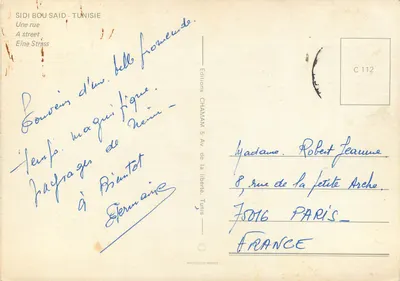 SIDI BOU SAID - TUNISIE
Une rue
A street
Eine Strass
Souvenir d'une belle promenade.
Temps magnifique.
paysages de
à Bientôt
Germaine
Editions CHAMAM 5 Av. de la liberté. Tunis
C 112
Madame Robert Jeanne
8, rue de la petite Arche.
75016 PARIS_
FRANCE